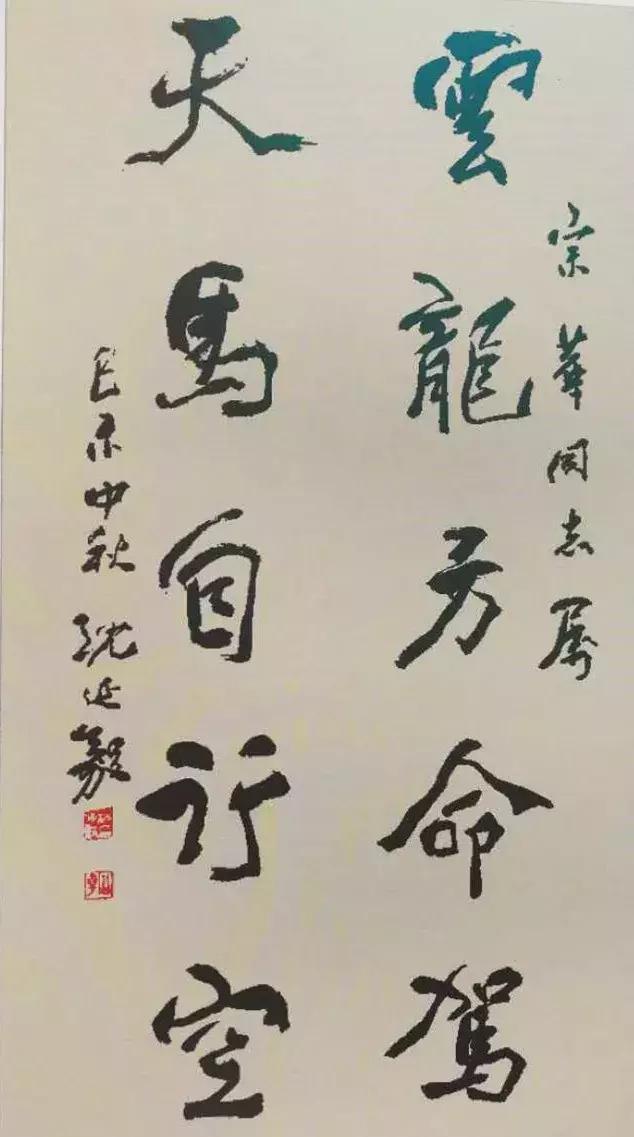 宗華同志属
雲龍方命駕
天馬自行空
己未中秋 沈延毅